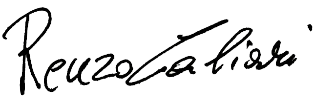 Renzo Caliari